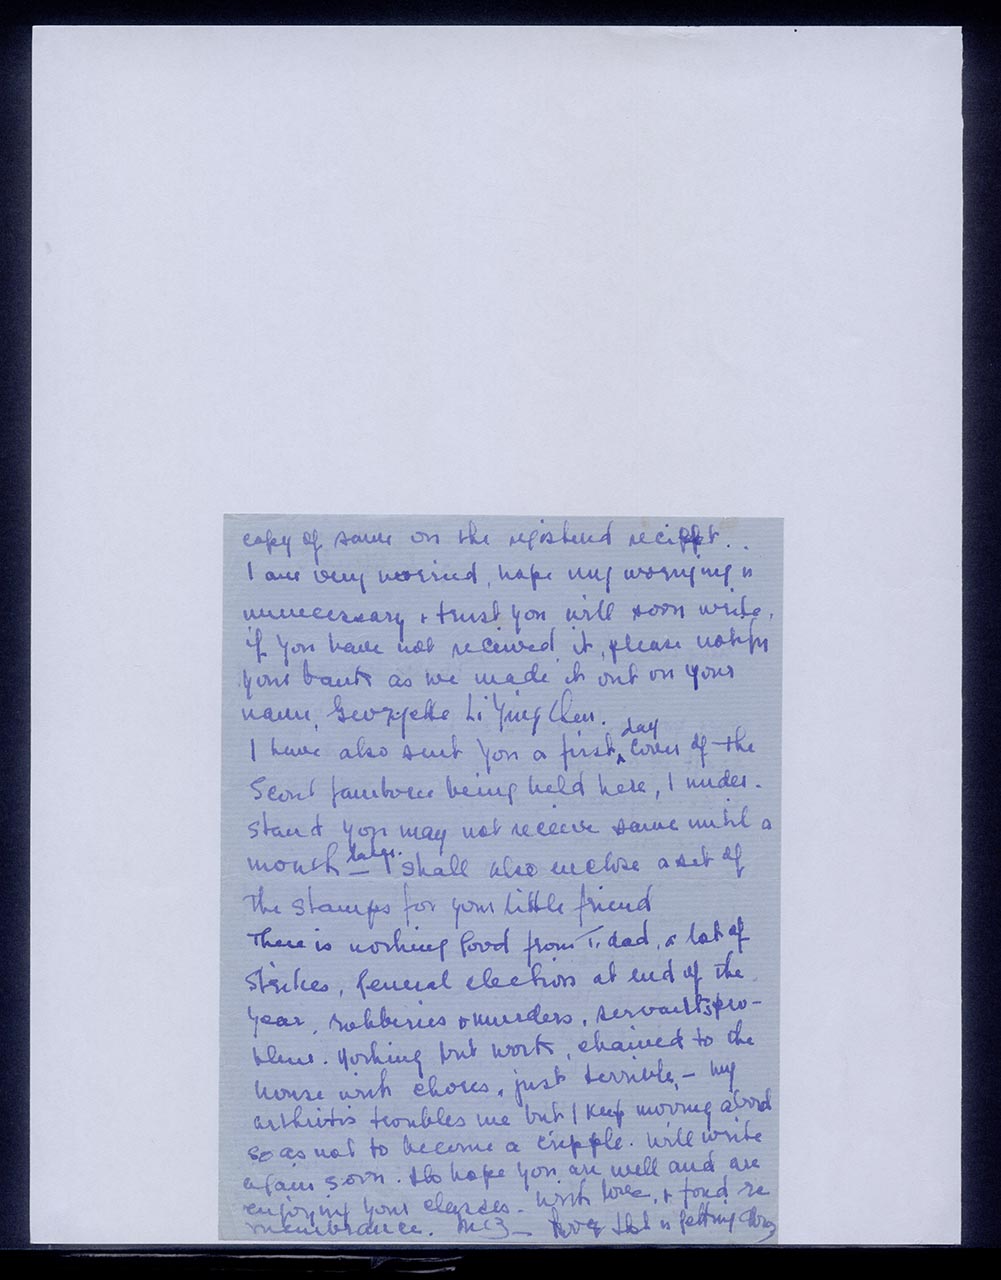 copy of same on the registered receipt..
I am very worried, hope my worrying is
unnecessary & trust you will soon write,
if you have not received it, please notify
your bank as we made it out on your
name, Georgette Li Ying Chen.
I have also sent you a first day cover of the
Scout Jamboree being held here, I under-
stand you may not receive same until a
month later. I shall also enclose a set of
the stamps for your little friend
There is nothing good from T. dad, a lot of
strikes, general elections at end of the
year, robberies & murders, servants pro-
blem. Nothing but work, chained to the
house with chores, just terrible, – my
arthritis troubles me but I keep moving about
so as not to become a cripple. Will write
again soon. Do hope you are well and are
enjoying your classes. With love, & fond re
membrance.